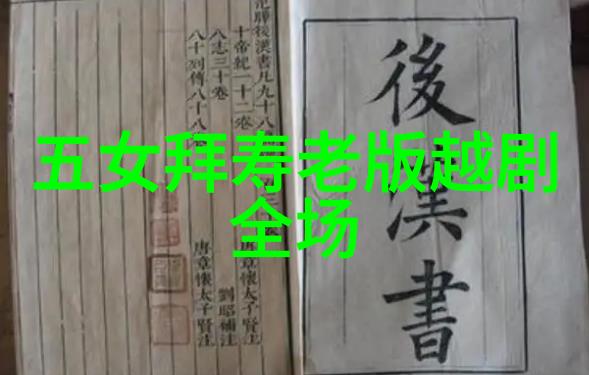 五女拜寿老版越剧
全场
後漢書
范曄後漢書凡九十八
十帝紀一十二卷
八志三十卷
八十列傳八十八卷
唐章懷太子賢注
劉昭補注
唐章懷太子賢注